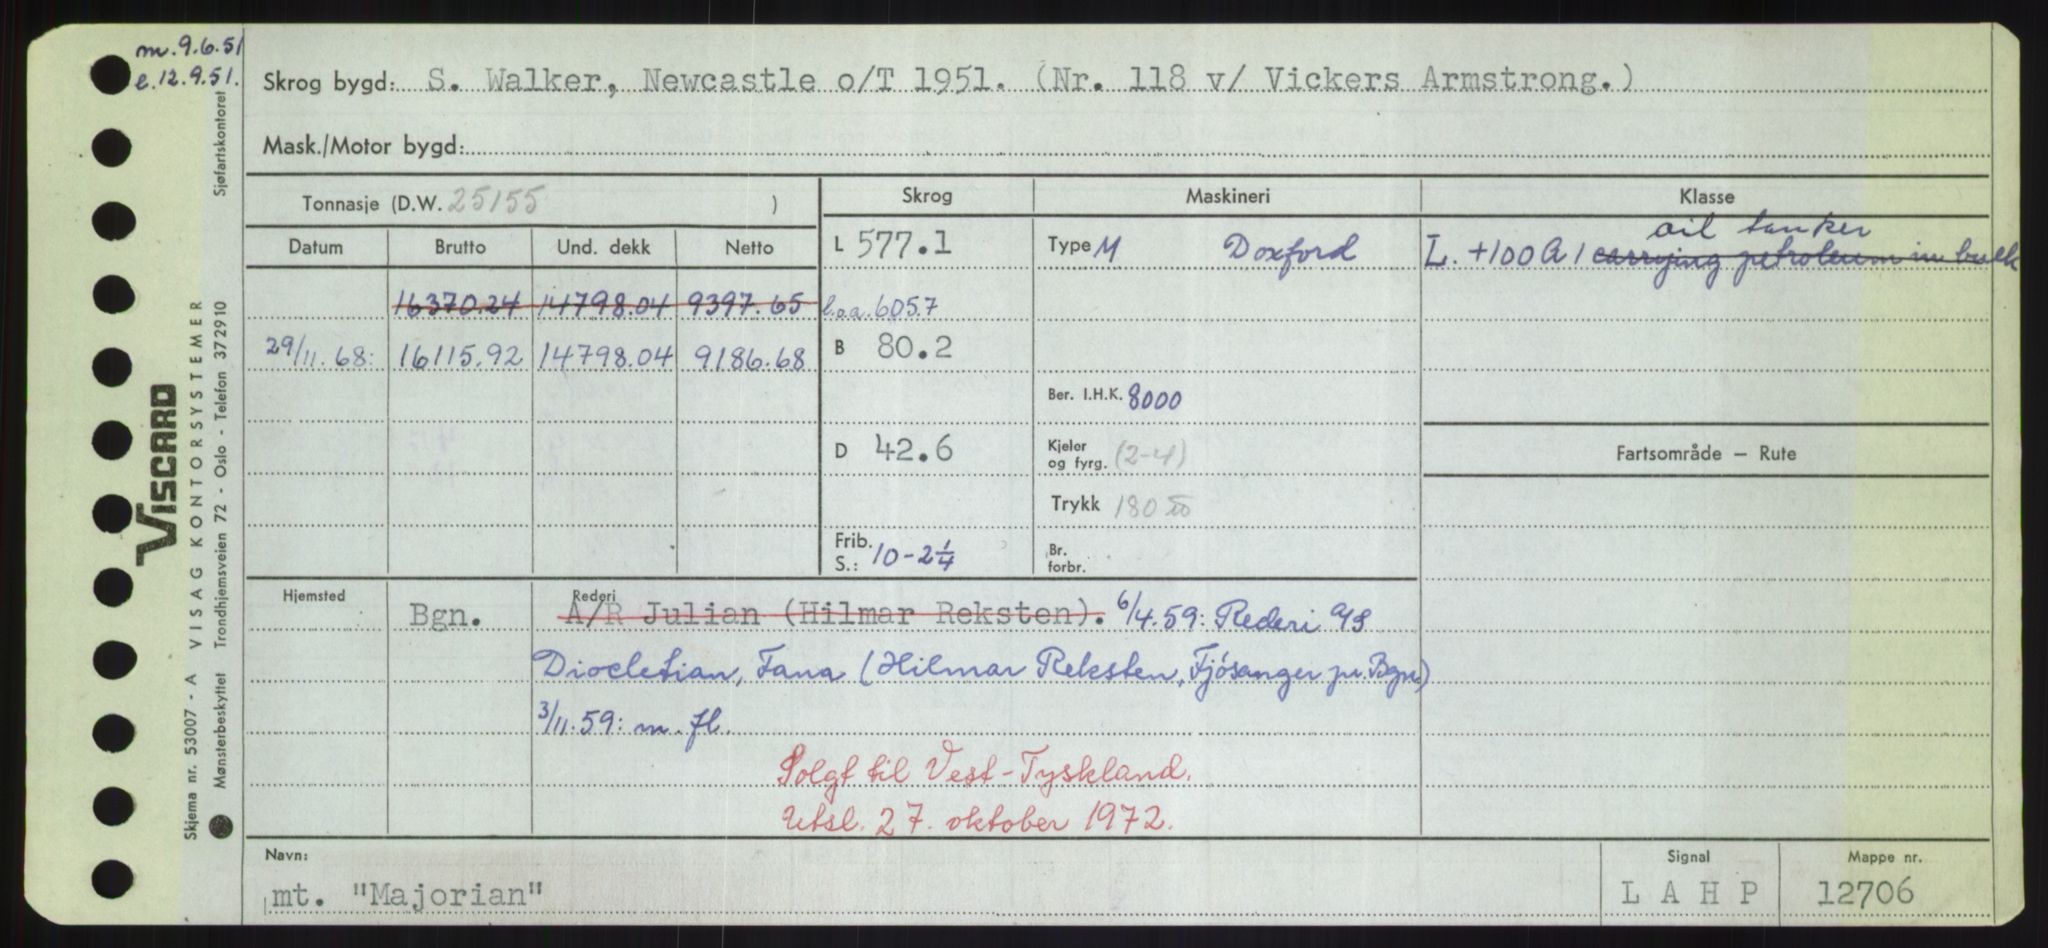 m. 9.6.51
e. 12.9.51.
Skrog bygd: S. Walker, Newcastle o/T 1951. (Nr. 118 v/ Vickers Armstrong.)
Mask./Motor bygd:
Tonnasje (D.W. 25155 )
Skrog
Maskineri
Klasse
Datum Brutto Und. dekk Netto
L 577.1
Type M Doxford
oil tanker
L. +100 A 1 carrying petroleum in bulk
16370.24 14798.04 9397.65
l.o.a. 605.7
29/11.68: 16115.92 14798.04 9186.68
B 80.2
Ber. I.H.K. 8000
D 42.6
Kjeler
og fyrg. (2-4)
Fartsområde – Rute
Trykk 180
Frib.
S.: 10-2¼
Br.
forbr.
Hjemsted
Rederi
Bgn. A/R Julian (Hilmar Reksten). 6/4.59: Rederi A/S
Diocletian, Fana (Hilmar Reksten, Fjøsanger pr. Bgn)
3/11.59: m. fl.
Solgt til Vest-Tyskland.
Utsl. 27. oktober 1972.
Navn:
Signal
Mappe nr.
mt. "Majorian"
L A H P
12706
Skjema nr. 53007 - A VISAG KONTORSYSTEMER
Mønsterbeskyttet Trondhjemsveien 72 - Oslo - Telefon 372910 Sjøfartskontoret
VISCARD